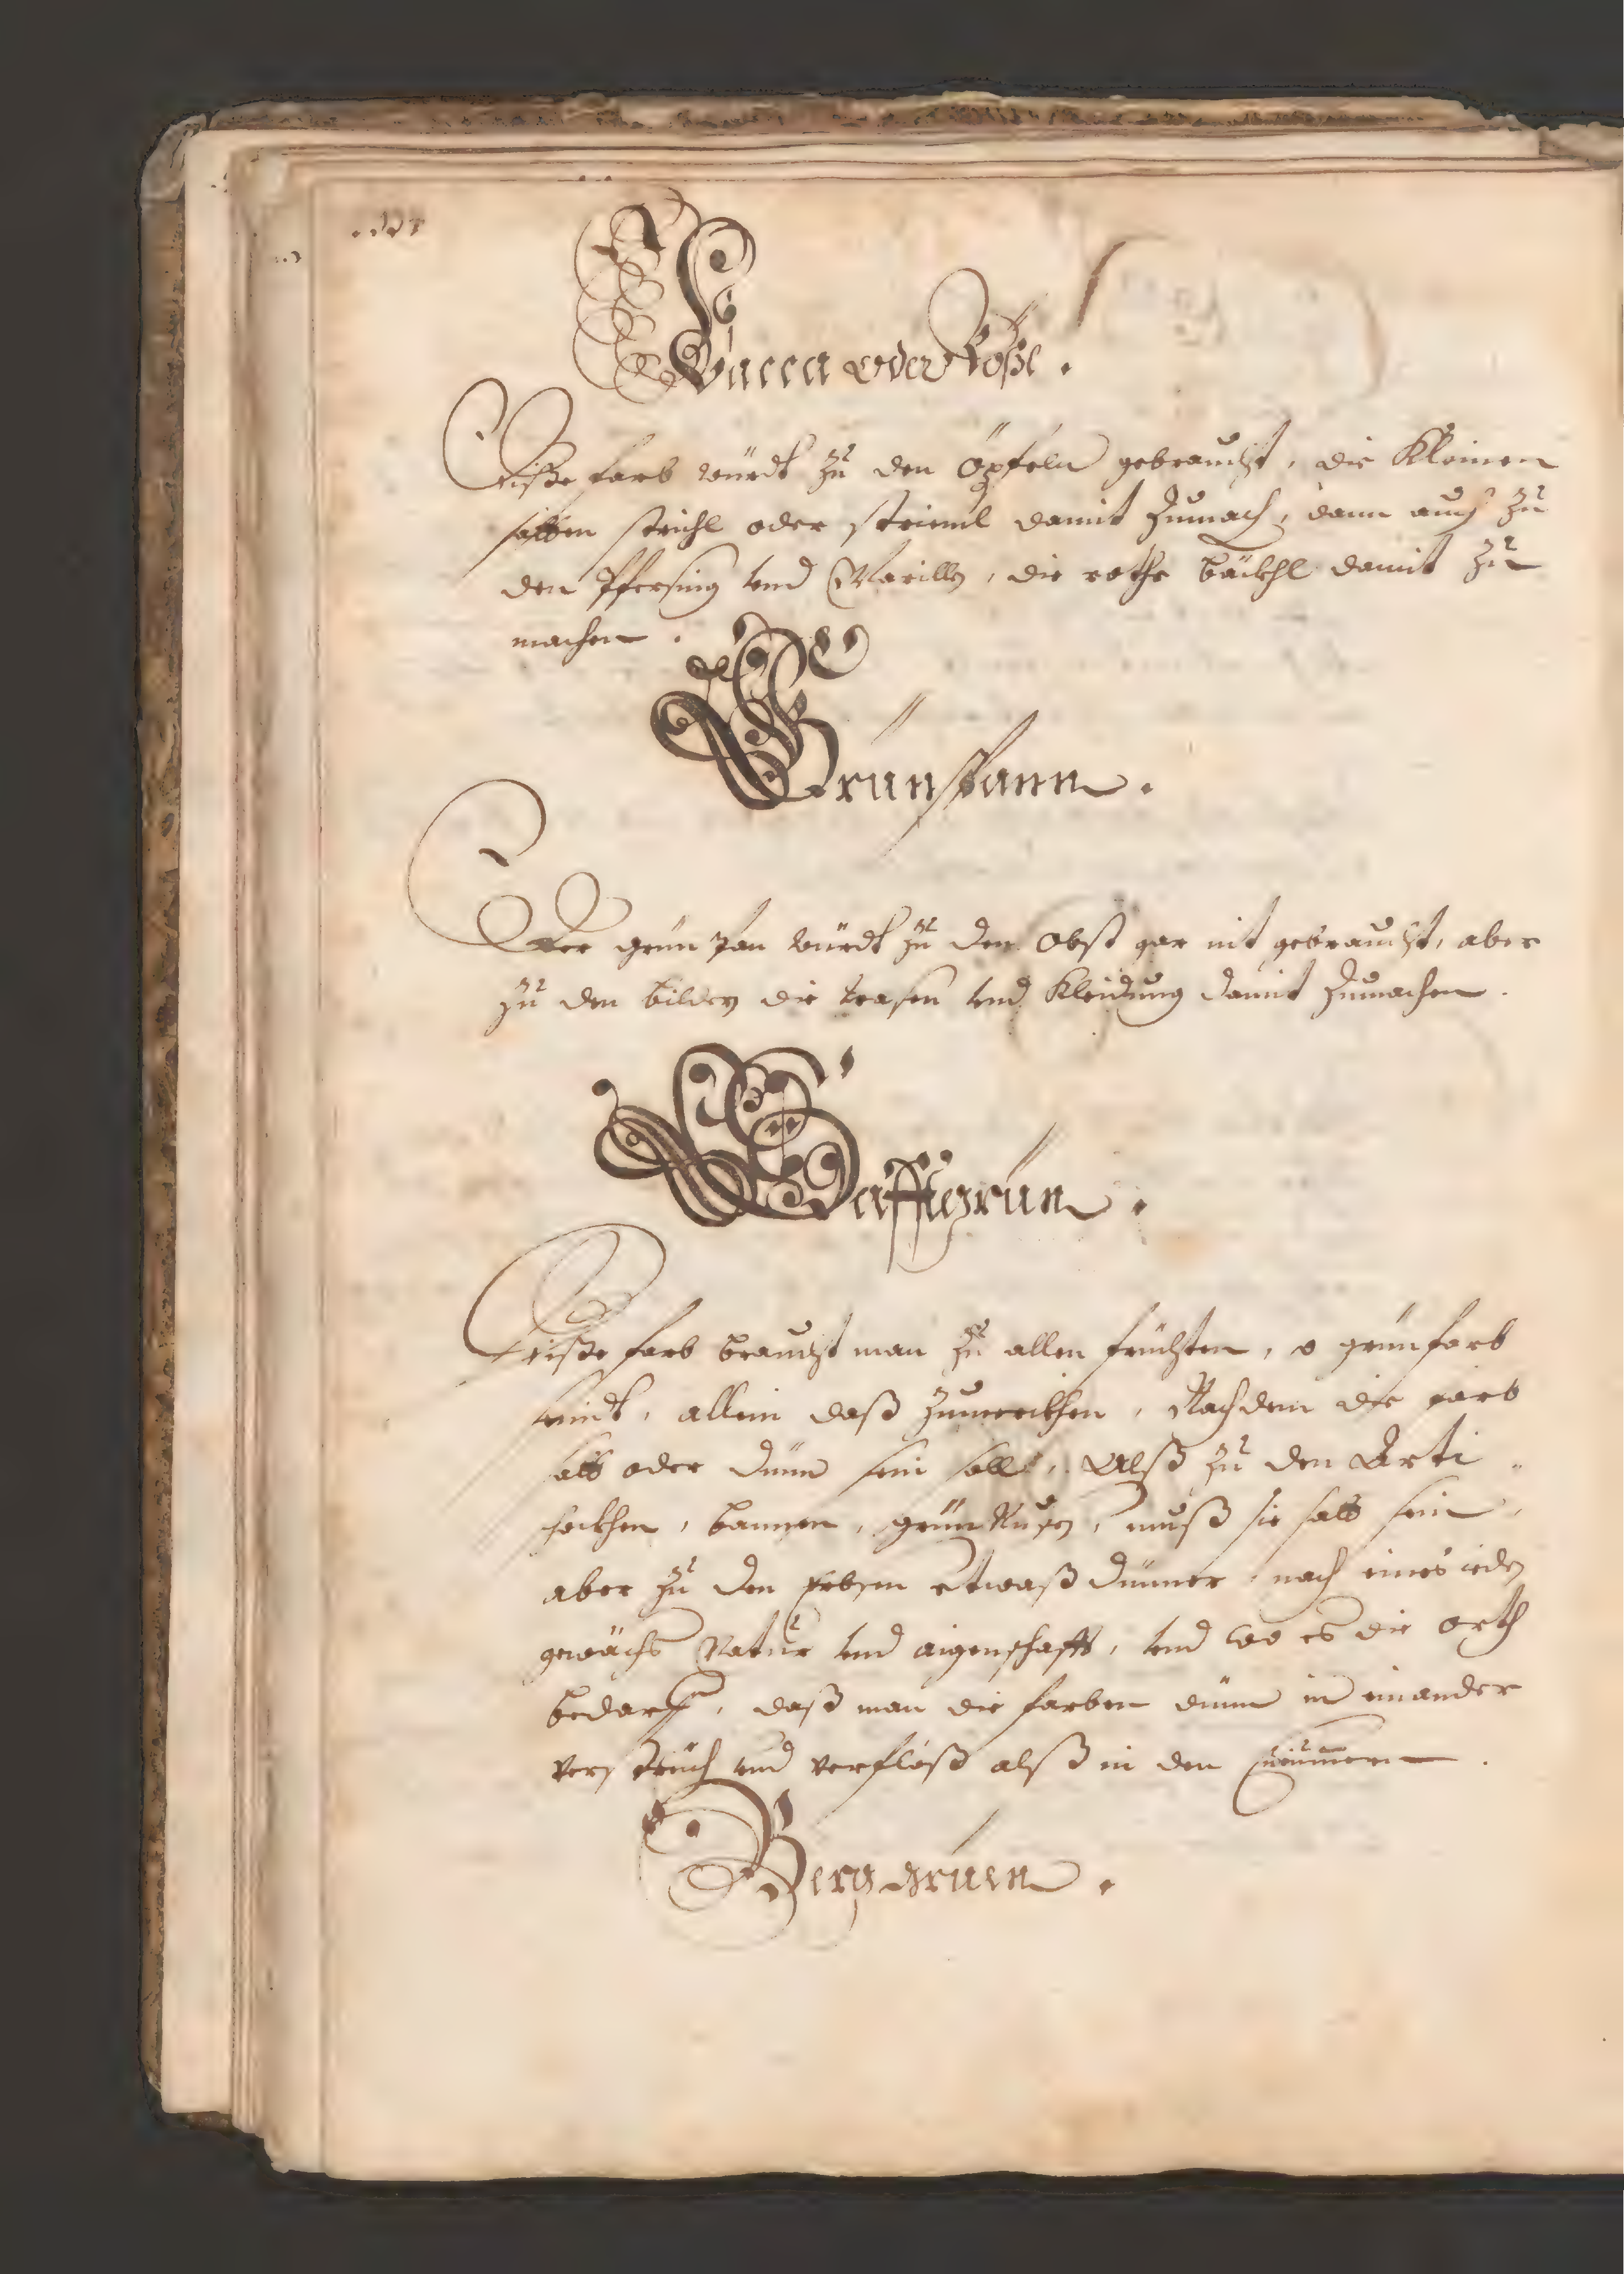 Lacca oder Roßl.
Diße farb würdt zu den Öpfeln gebraucht, die Kleinen
selben strichl oder strieml damit zumach, dann auch zu
den Pfersing und Marilln, die rothe bäckhl damit zu
machen.
Grünspann.
Der grün span würdt zu den Obst gar nit gebraucht, aber
zu den bildern die wasen und Kleidung damit zumachen.
Safftgrün.
Diße farb braucht man zu allen früchten, so grünfarb
seindt, allein daß zumerckhen, Nachdem die farb
satt oder dünn sein solle, Alß zu den Arti
sockhen, bonnen, grün Nußen, muß sie satt sein,
aber zu den erbsen etwaß dünner nach eines ieden
gewächs Natur und aigenschafft, und wo es die orth
bedarff, daß man die farben dünn in einander
verstreich und verflöß alß in den
Berggrüen.